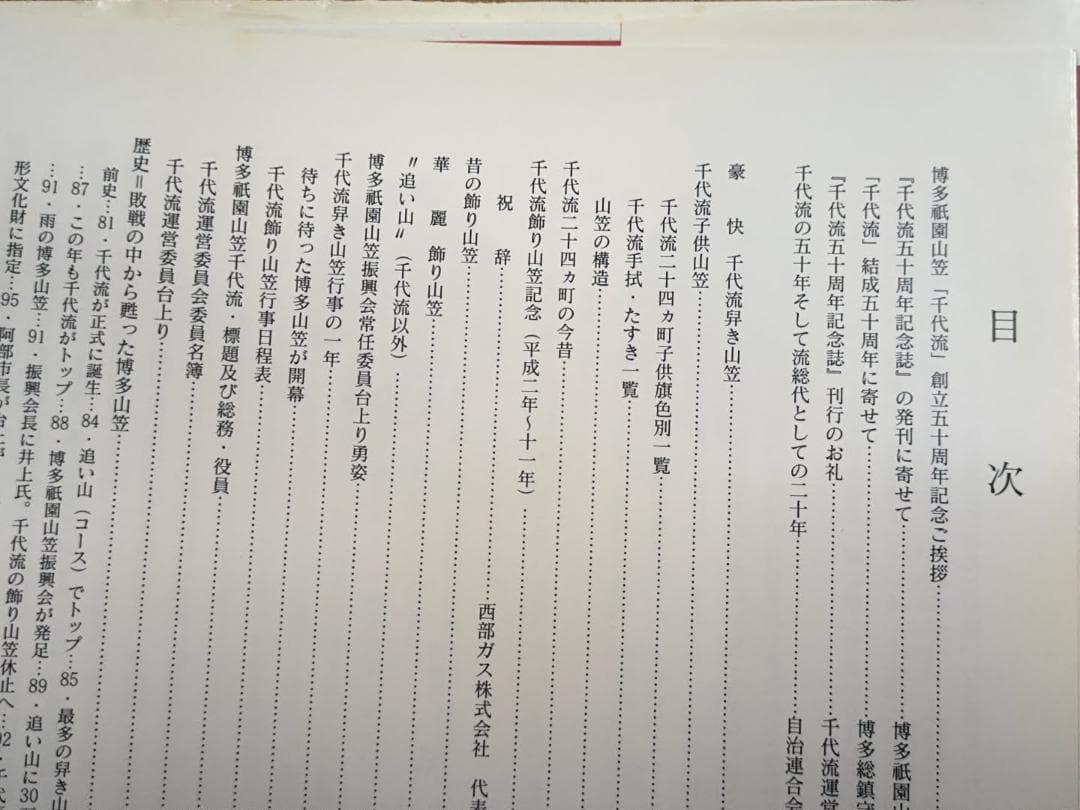 目次
博多祇園山笠「千代流」創立五十周年記念ご挨拶
『千代流五十周年記念誌』の発刊に寄せて 博多祇園
「千代流」結成五十周年に寄せて 博多総鎮守
『千代流五十周年記念誌』刊行のお礼 千代流運営
千代流の五十年そして流総代としての二十年 自治連合会
豪快 千代流舁き山笠
千代流子供山笠
千代流二十四ヵ町子供旗色別一覧
千代流手拭・たすき一覧
山笠の構造
千代流二十四ヵ町の今昔
千代流飾り山笠記念（平成二年〜十一年）
祝辞 西部ガス株式会社 代表
昔の飾り山笠
華麗 飾り山笠
〃追い山〃（千代流以外）
博多祇園山笠振興会常任委員台上り勇姿
千代流舁き山笠行事の一年
待ちに待った博多山笠が開幕
千代流飾り山笠行事日程表
博多祇園山笠千代流・標題及び総務・役員
千代流運営委員会委員名簿
千代流運営委員台上り
歴史＝敗戦の中から甦った博多山笠
前史…81・千代流が正式に誕生…84・追い山（コース）でトップ…85・最多の舁き山
…87・この年も千代流がトップ…88・博多祇園山笠振興会が発足…89・追い山に30
…91・雨の博多山笠…91・振興会長に井上氏。千代流の飾り山笠休止へ…92・千代
形文化財に指定…95・阿部市長が台上